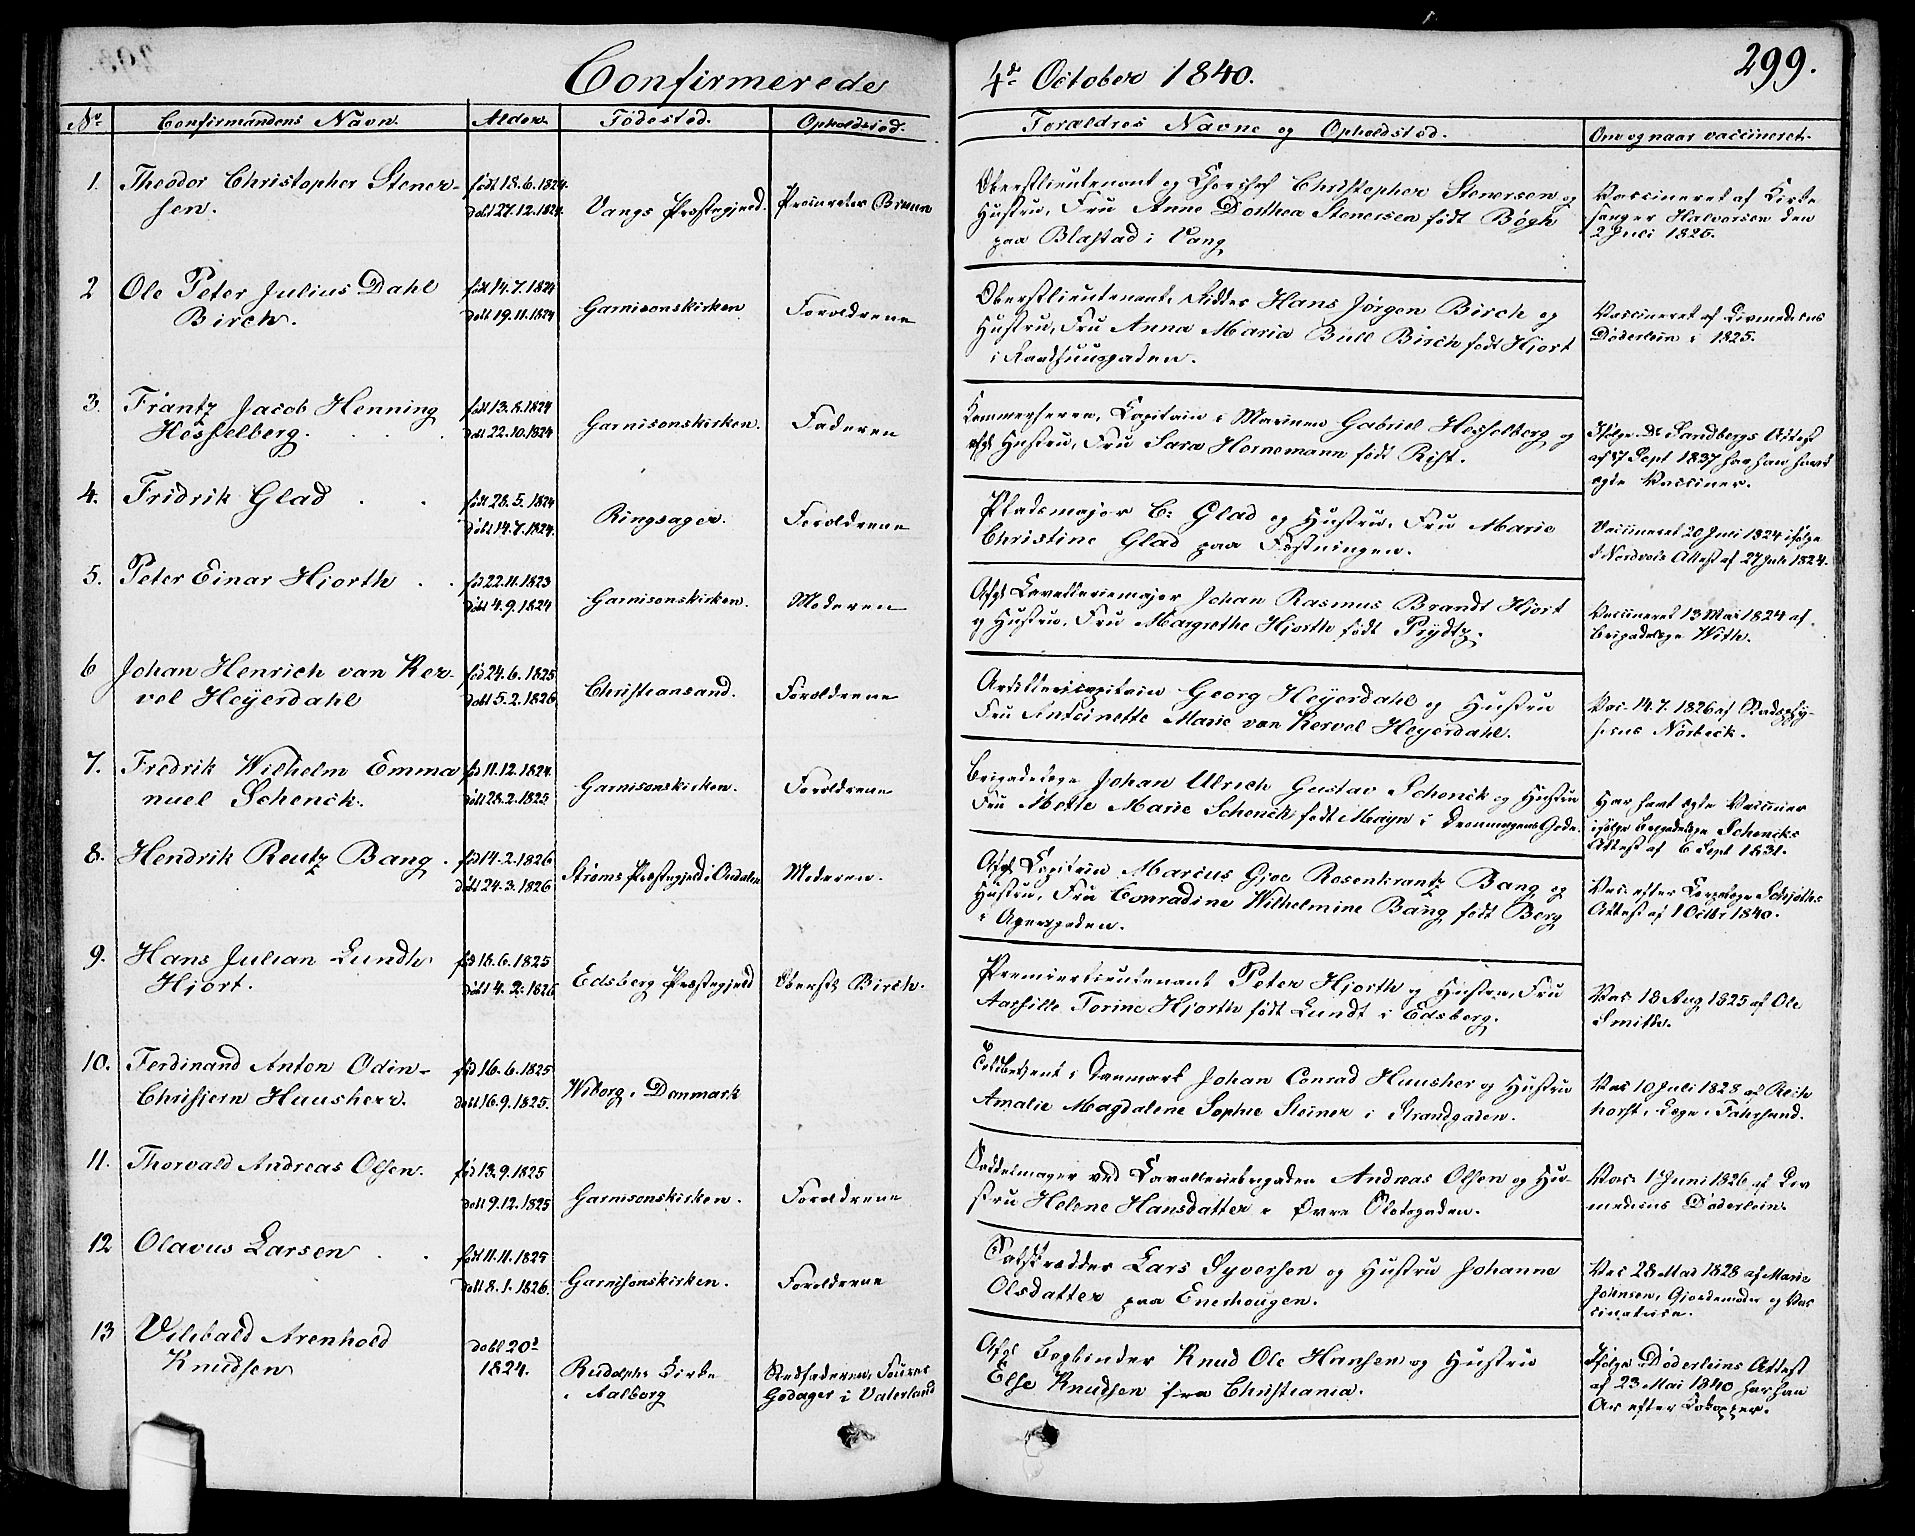 299.
Confirmerede 4de October 1840.
No Confirmandens Navn. Alder. Fødested. Opholdsted. Forældres Navne og Opholdsted. Om og naar vaccineret.
1. Theodor Christopher Stener-
sen.
født 18.6.1824.
døbt 27.12.1824.
Vangs Præstegjeld.
Oberstlieutenant og Christopher Stenersen og
Hustru, Fru Anne Dorthea Stenersen født Bøgh
paa Blæstad i Vang
Vaccineret af Kirke
sanger Halvorsen den
2 Juli 1825.
2 Ole Peter Julius Dahl
Birch.
født 14.7.1824
døbt 19.11.1824
Garnisonskirken
Forældrene
Oberstlieutenant, Ridder Hans Jørgen Birch og
Hustru, Fru Anna Maria Bull Birch født Hjort
i Raadhuusgaden.
Vaccineret af Livmedicus
Døderlein i 1825.
3. Frantz Jacob Henning
Hesselberg.
født 13.8.1824
døbt 22.10.1824
Garnisonskirken.
Faderen
Kammerherre, Capitain i Marinen Gabriel Hesselberg og
Hustru, Fru Sara Hornemann født Rist.
Ifølge Dr Sandbergs Attest
af 17 Sept 1837 har han havt
ægte Vacciner.
4. Fridrik Glad
født 28.5.1824
døbt 14.7.1824.
Ringsager.
Forældrene
Pladsmajor C: Glad og Hustru, Fru Marie
Christine Glad paa Fæstningen.
Vaccineret 20 Juli 1824 ifølge
Attest af 27 Juli 1824.
5. Peter Einar Hjorth
fød 22.11.1823
døbt 4.9.1824
Garnisonskirken.
Moderen
Afgl Cavalleriemajor Johan Rasmus Brandt Hjort
og Hustru, Fru Margrethe Hjorth født Prydtz.
Vaccineret 13 Mai 1824 af
Brigadelæge With.
6 Johan Henrich van Ker-
vel Heyerdahl
fød 24.6.1825
døbt 5.2.1826
Christiansand.
Forældrene
Artillericapitain Georg Heyerdahl og Hustru
Fru Antoinette Marie van Kervel Heyerdahl.
Vac. 14.7.1826 af Stadsphy-
sicus Norbeck.
7. Fredrik Wilhelm Emma
nuel Schenck.
fød 11.12.1824
døbt 28.2.1825
Garnisonskirken.
Forældrene
Brigadelæge Johan Ulrich Gustav Schenck og Hustru
Fru Mette Marie Schenck født Mayn i Dronningens Gade.
Har havt ægte Vacciner
ifølge Brigadelæge Schencks
Attest af 6 Sept 1831.
8. Hendrik Reutz Bang.
fød 14.2.1826
døbt 24.3.1826
Strøms Præstegjeld i Odalen
Moderen.
Afgl Capitain Marcus Gjøe Rosenkrantz Bang og
Hustru, Fru Conradine Wilhelmine Bang født Berg
i Agersgaden.
Vac. efter
Attest af 1 Octbr 1840.
9. Hans Julian Lundth
Hjort.
fød 18.6.1825
døbt 4.2.1826
Edsberg Præstegjeld
Oberstl Birch.
Premierlieutenant Peter Hjorth og Hustru, Fru
Aassille Torine Hjorth født Lundt i Edsberg.
Vac. 18 Aug 1825 af Ole
Smith.
10. Ferdinand Anton Odin-
Chrisjern Hausherr.
fød 16.6.1825
døbt 16.9.1825.
Wiborg i Danmark
i Danmark Johan Conrad Hausher og Hustru
Amalie Magdalene Sophie Steiner i Strandgaden.
Vac 10 Juli 1828 af Reich
horst, Læge i Farsund.
11. Thorvald Andreas Olsen.
fød 13.9.1825
døbt 9.12.1825
Garnisonskirken.
Forældrene
Sadelmager ved Cavalleriebrigaden Andreas Olsen og Hu-
stru Helene Hansdatter i Øvre Slotsgaden.
Vac. 1 Juni 1826 af Liv
medicus Døderlein.
12 Olavus Larsen
født 11.11.1825
døbt 8.1.1826.
Garnisonskirken.
Forældrene
Lars Syversen og Hustru Johanne
Olsdatter paa Enerhougen.
Vac 28 Mai 1828 af Marie
Johnsen, Gjordemoder og Vac
cinatrice.
13 Vilibald Arenhold
Knudsen
døbt 20d
1824.
Budolphi Kirke
i Aalborg
Stedfaderen, Fourer
Godager i Vaterland
Afgl Bogbinder Knud Ole Hansen og Hustru
Else Knudsen fra Christiania.
Ifølge Døderleins Attest
af 23 Mai 1840 har han
Ar efter Kokopper.